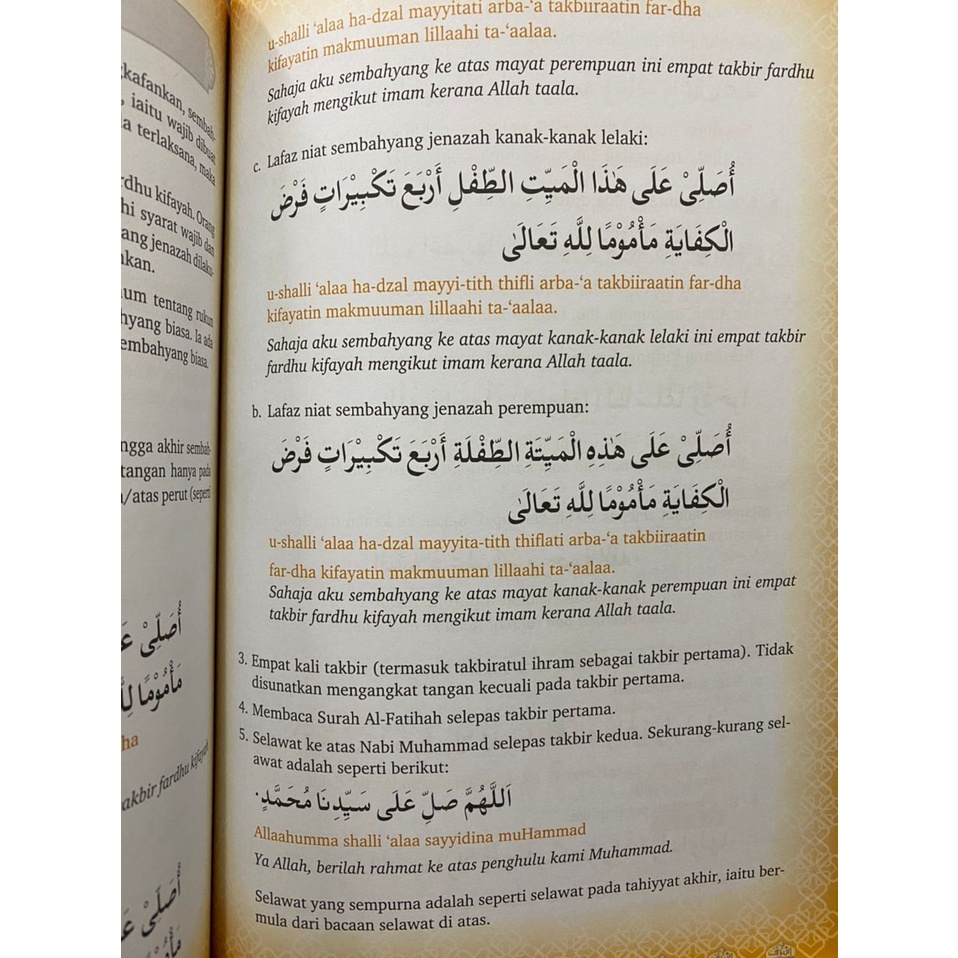 kafankan, sembah-
iaitu wajib dibuat
terlaksana, maka
rdhu kifayah. Orang
hi syarat wajib dan
ang jenazah dilaku-
nkan.
um tentang rukun
hyang biasa. Ia ada
embahyang biasa.
ngga akhir sembah-
tangan hanya pada
/atas perut (seperti
أُصَلِّيْ عَ
مَأْمُوْمًا لِلَّ
ha
akbir fardhu kifayah
أُصَلِّيْ عَ
u-shalli ‘alaa ha-dzal mayyitati arba-‘a takbiiraatin far-dha
kifayatin makmuuman lillaahi ta-‘aalaa.
Sahaja aku sembahyang ke atas mayat perempuan ini empat takbir fardhu
kifayah mengikut imam kerana Allah taala.
c. Lafaz niat sembahyang jenazah kanak-kanak lelaki:
أُصَلِّيْ عَلَى هَٰذَا الْمَيِّتِ الطِّفْلِ أَرْبَعَ تَكْبِيْرَاتٍ فَرْضَ
الْكِفَايَةِ مَأْمُوْمًا لِلَّهِ تَعَالَىٰ
u-shalli ‘alaa ha-dzal mayyi-tith thifli arba-‘a takbiiraatin far-dha
kifayatin makmuuman lillaahi ta-‘aalaa.
Sahaja aku sembahyang ke atas mayat kanak-kanak lelaki ini empat takbir
fardhu kifayah mengikut imam kerana Allah taala.
b. Lafaz niat sembahyang jenazah perempuan:
أُصَلِّيْ عَلَى هَٰذِهِ الْمَيِّتَةِ الطِّفْلَةِ أَرْبَعَ تَكْبِيْرَاتٍ فَرْضَ
الْكِفَايَةِ مَأْمُوْمًا لِلَّهِ تَعَالَىٰ
u-shalli ‘alaa ha-dzal mayyita-tith thiflati arba-‘a takbiiraatin
far-dha kifayatin makmuuman lillaahi ta-‘aalaa.
Sahaja aku sembahyang ke atas mayat kanak-kanak perempuan ini empat
takbir fardhu kifayah mengikut imam kerana Allah taala.
3. Empat kali takbir (termasuk takbiratul ihram sebagai takbir pertama). Tidak
disunatkan mengangkat tangan kecuali pada takbir pertama.
4. Membaca Surah Al-Fatihah selepas takbir pertama.
5. Selawat ke atas Nabi Muhammad selepas takbir kedua. Sekurang-kurang sel-
awat adalah seperti berikut:
اَللَّهُمَّ صَلِّ عَلَى سَيِّدِنَا مُحَمَّدٍ.
Allaahumma shalli ‘alaa sayyidina muHammad
Ya Allah, berilah rahmat ke atas penghulu kami Muhammad.
Selawat yang sempurna adalah seperti selawat pada tahiyyat akhir, iaitu ber-
mula dari bacaan selawat di atas.